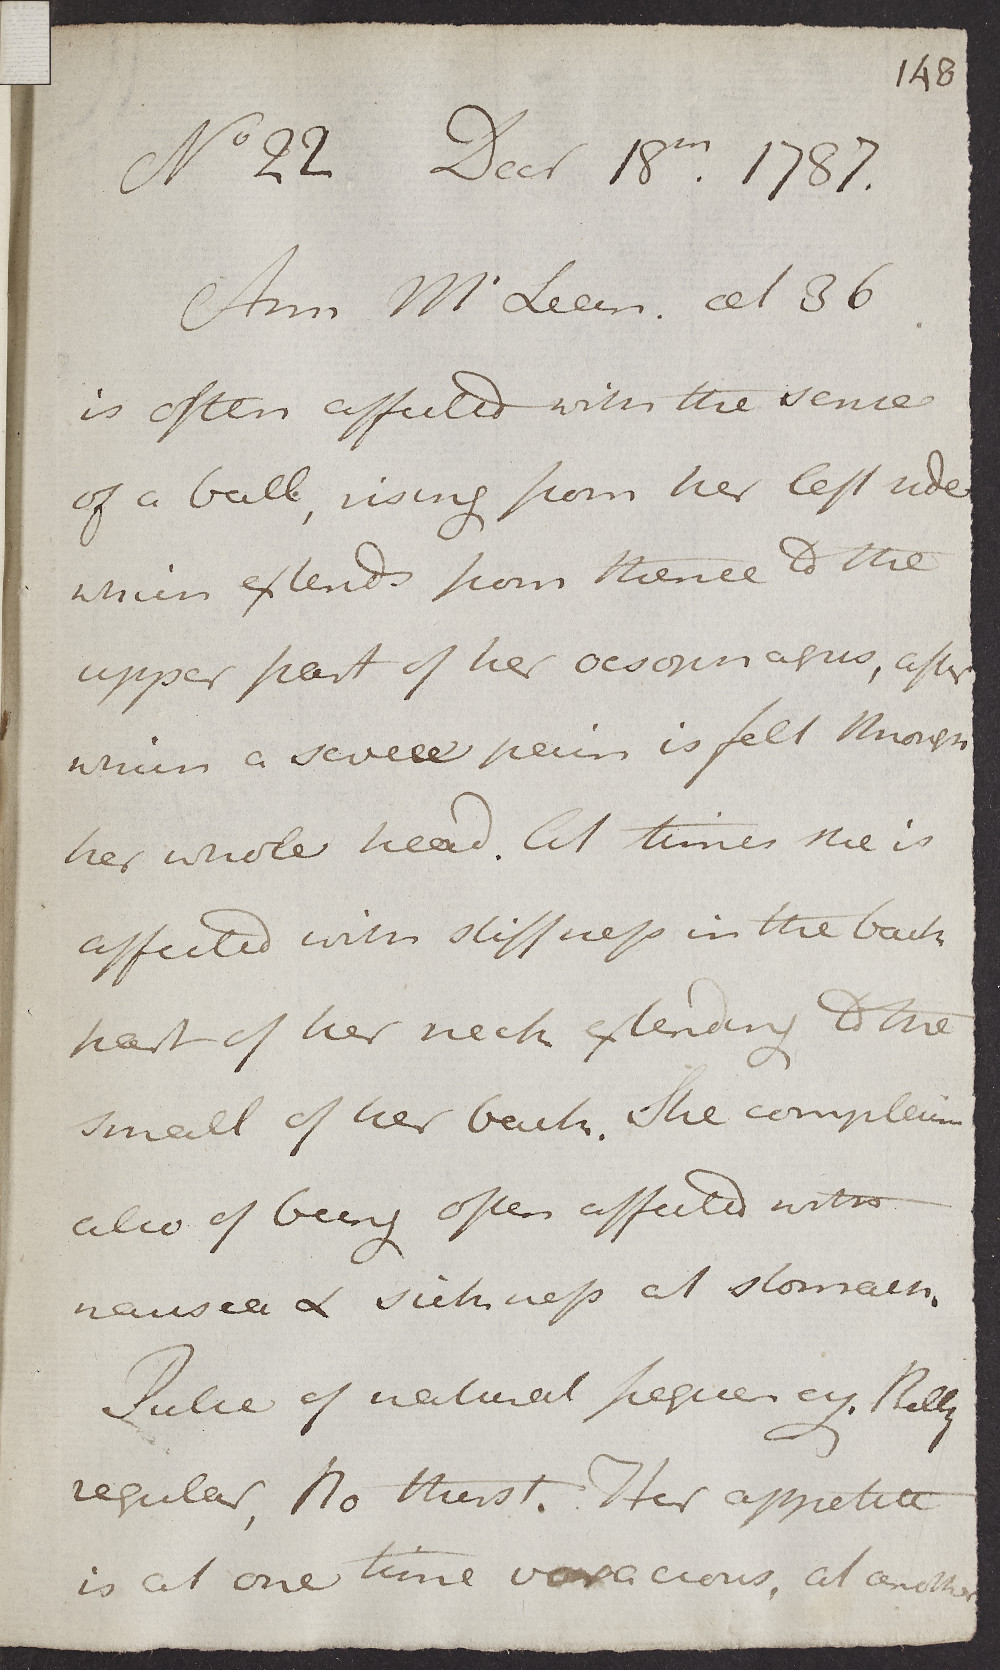 148
No 22 Decr 18th. 1787.
Ann McLean. aet 36
is often affected with the sense
of a ball, rising from her left side
which extends from thence to the
upper part of her oesophagus, after
which a severe pain is felt through
her whole head. At times she is
affected with stiffness in the back
part of her neck extending to the
small of her back. She complains
also of being often affected with
nausea & sickness at stomach.
Pulse of natural frequency. Belly
regular, No thirst. Her appetite
is at one time voracious, at another